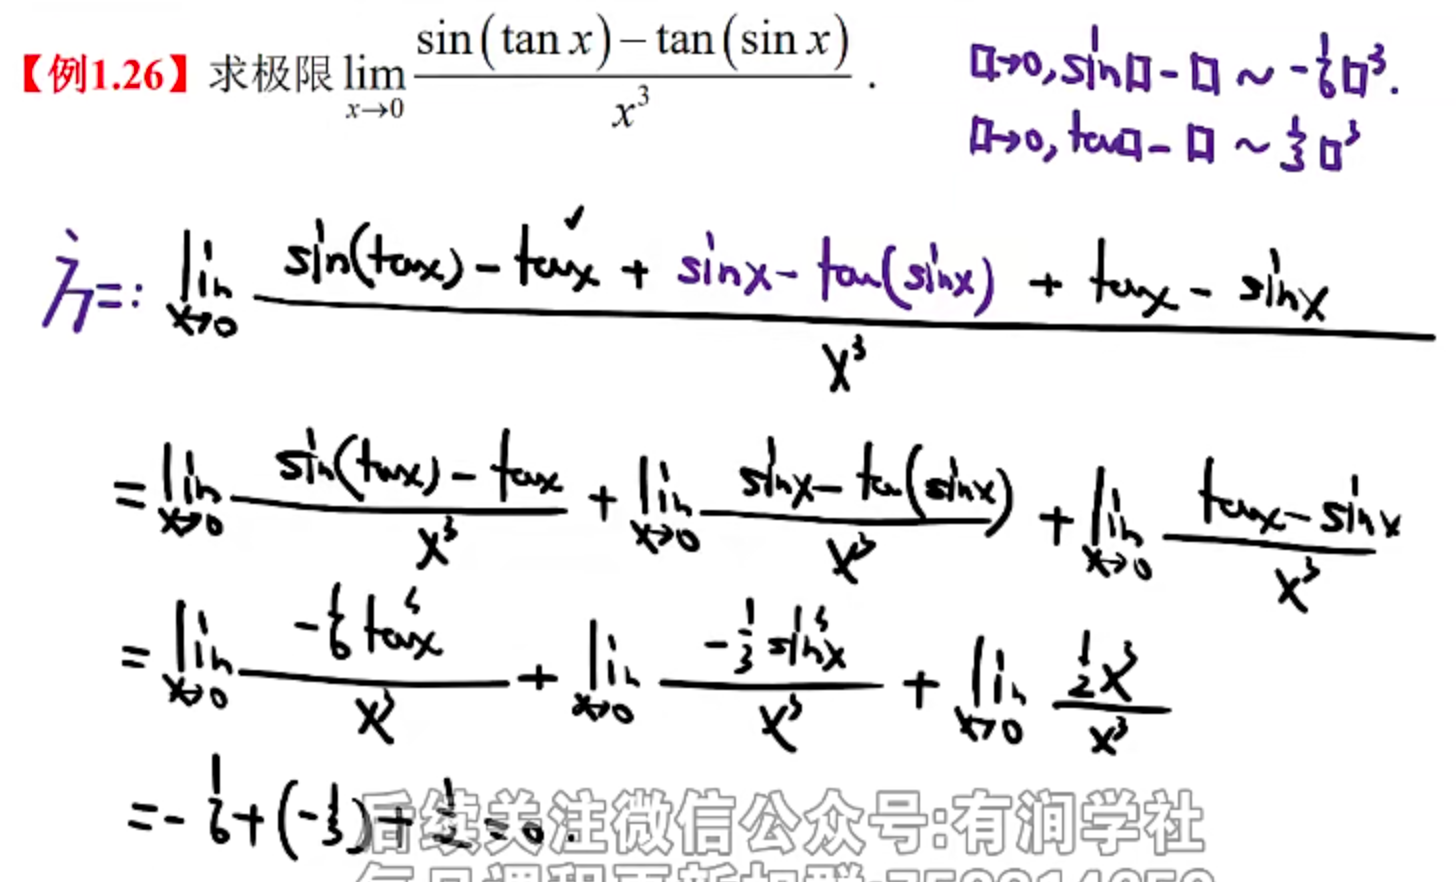 【例1.26】求极限 lim x→0 (sin(tan x) − tan(sin x)) / x³ .
□→0, sin□ - □ ~ -1/6 □³.
□→0, tan□ - □ ~ 1/3 □³
lim x→0 (sin(tanx) - tanx + sinx - tan(sinx) + tanx - sinx) / x³
= lim x→0 (sin(tanx) - tanx) / x³ + lim x→0 (sinx - tan(sinx)) / x³ + lim x→0 (tanx - sinx) / x³
= lim x→0 (-1/6 tan³x) / x³ + lim x→0 (-1/3 sin³x) / x³ + lim x→0 (1/2 x³) / x³
= -1/6 + (-1/3) + 1/2 = 0.
后续关注微信公众号:有润学社